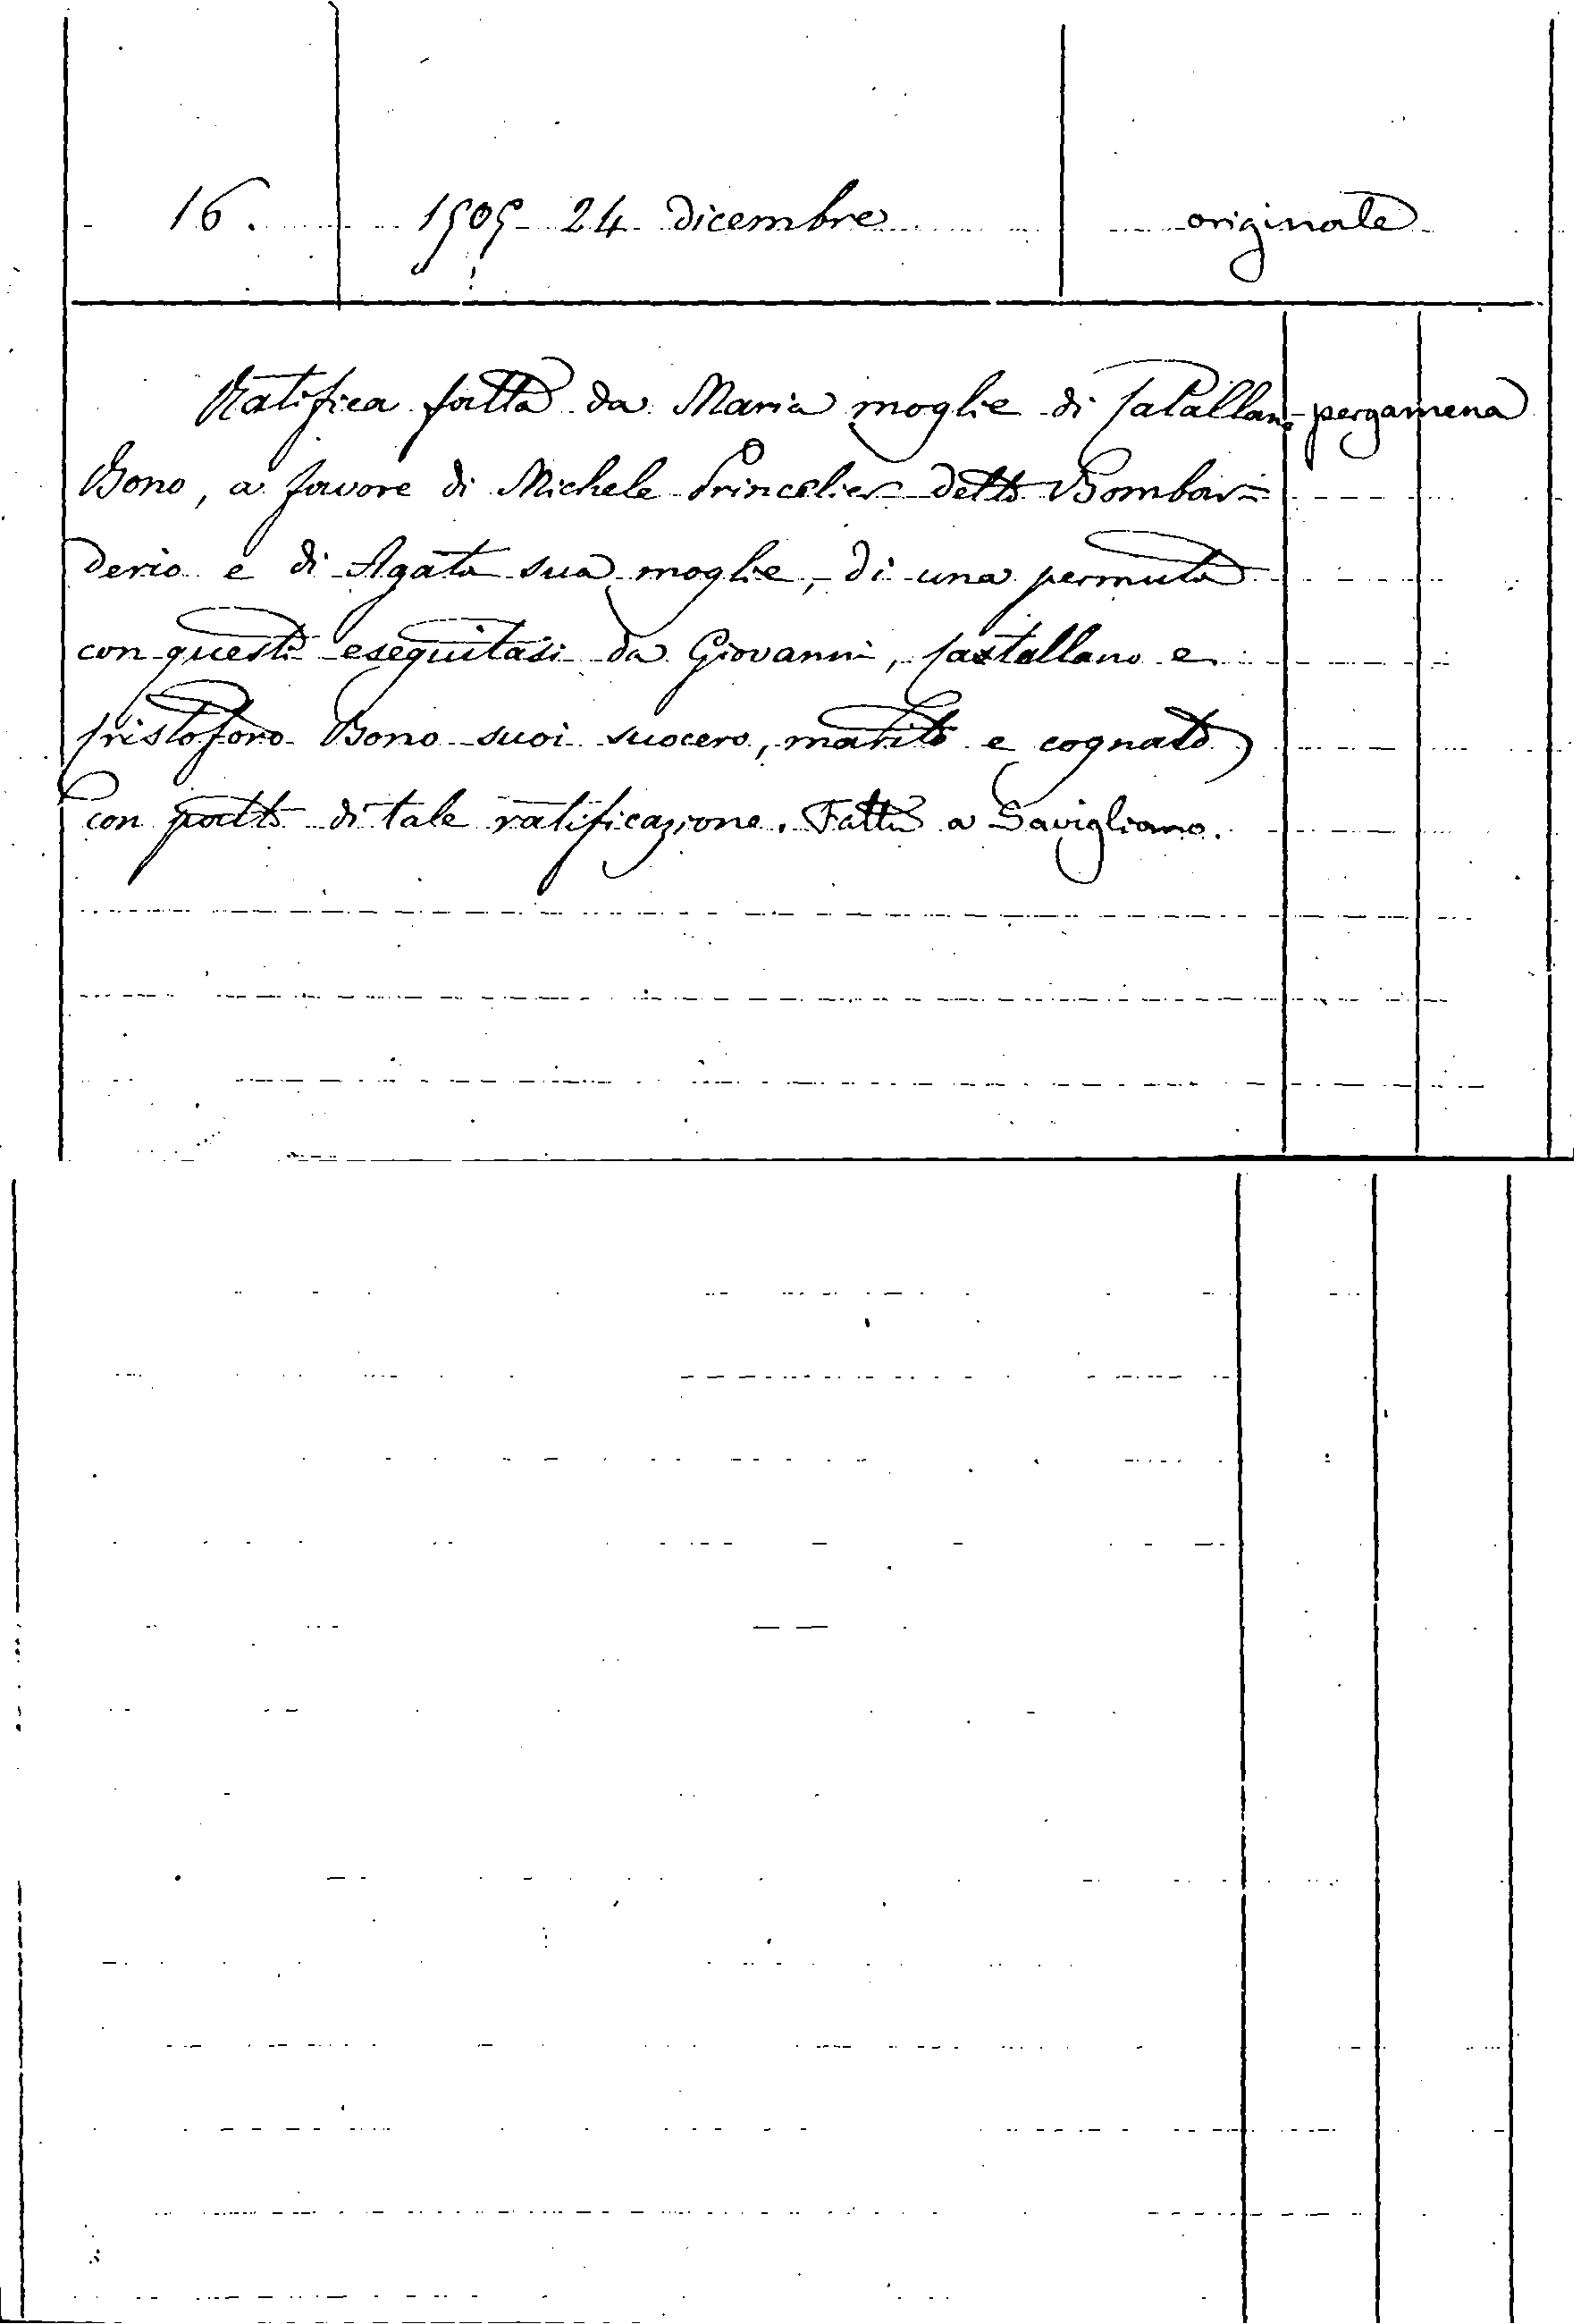 16. 1505 24 dicembre originale
Ratifica fatta da Maria moglie di Catallano pergamena
Bono, a favore di Michele Princelier detto Bombar=
derio e di Agata sua moglie, di una permuta
con questi eseguitasi da Giovanni, Castallano e
Cristoforo Bono suoi suocero, marito e cognato
con patto di tale ratificazione. Fatta a Savigliano.